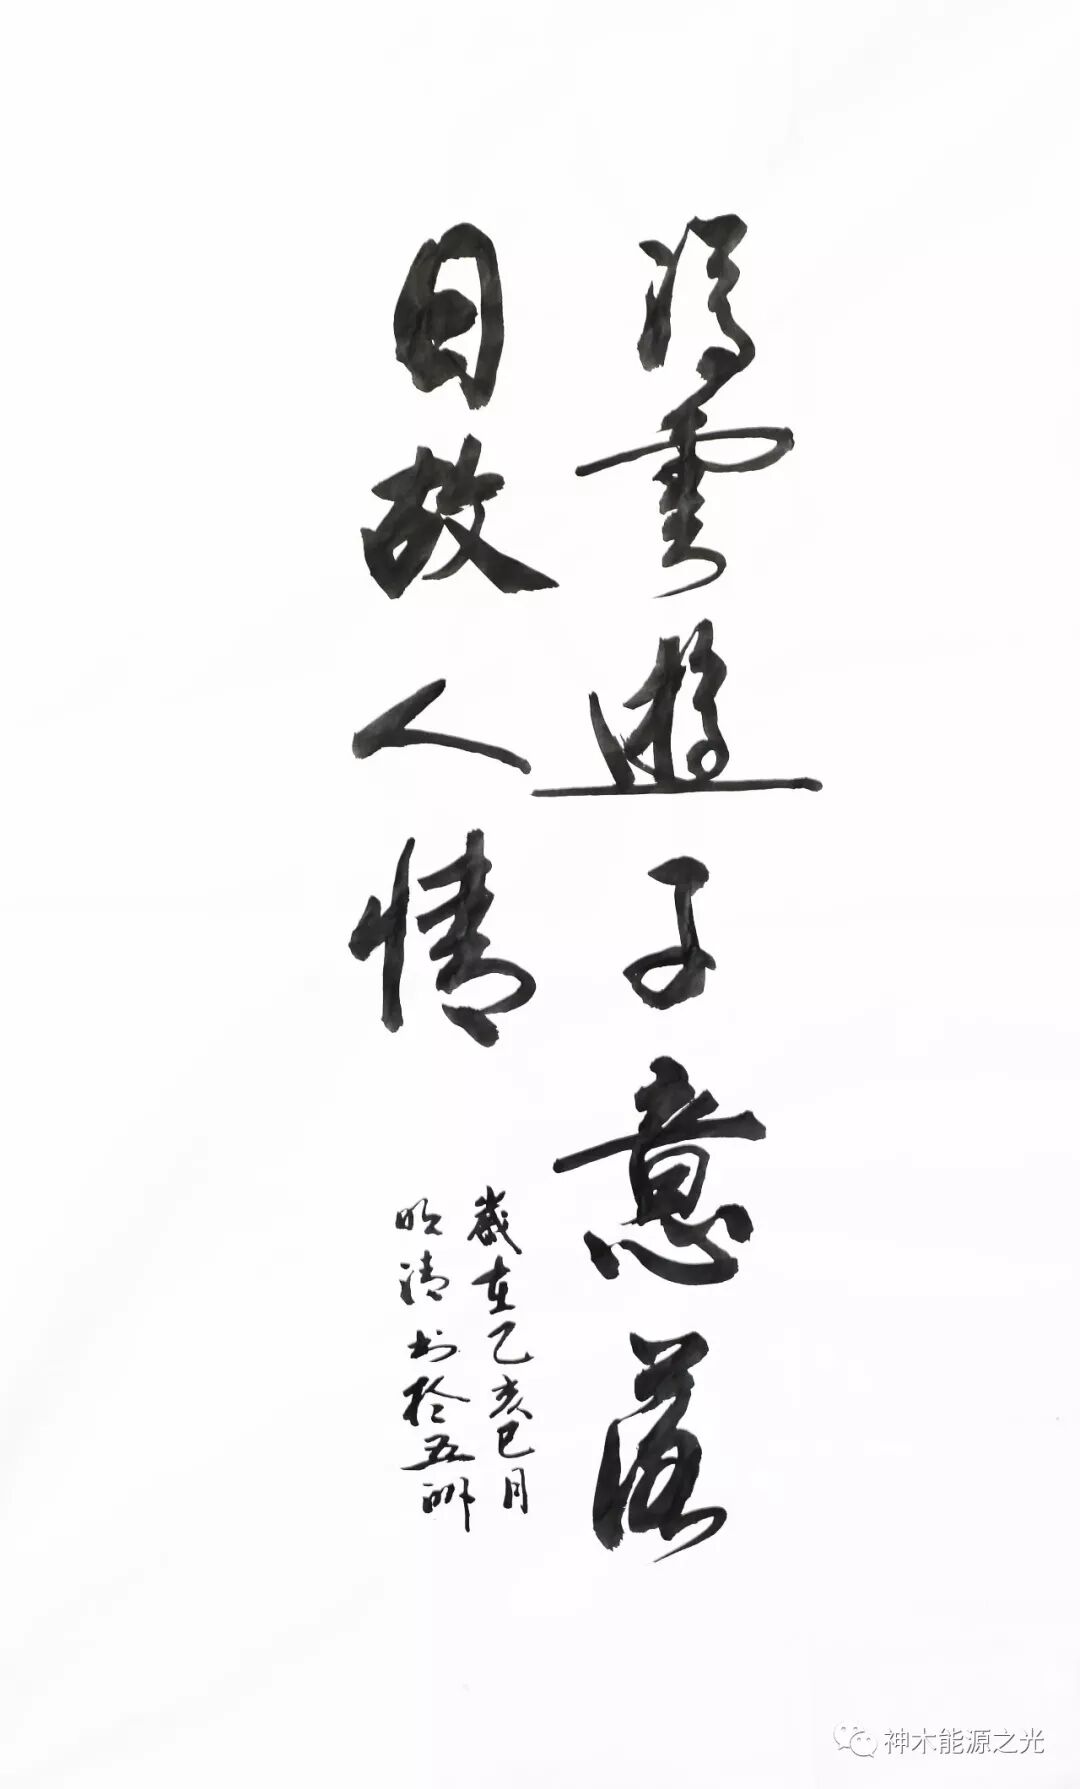 浮雲遊子意落
日故人情
歲在乙亥巳月
清书於五洲
神木能源之光